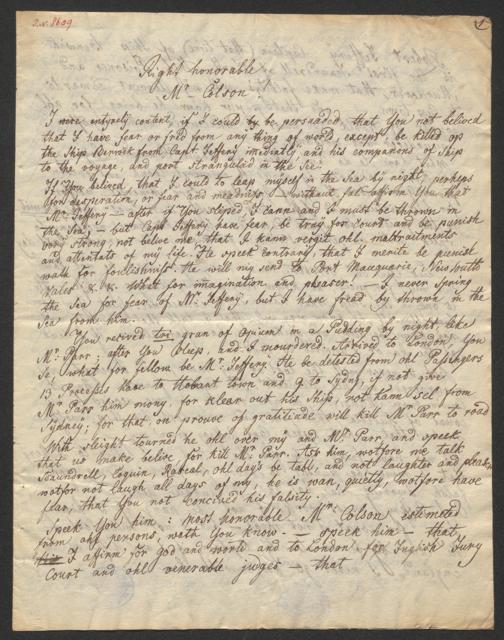 1
Right honorable
Mr. Colson.
I were entyrely content, if I could by be persuaded, that You not belived
that I have fear or fred from any thing of world, except be killed op
the Ship Berwick from Capt. Jeffery imediatly and his companions of Ship
to the voyage, and not strangulid in the See
If You belived, that I could to leap myself in the Sea by night, perhaps
for desperation, or fear and meadness — without fel affirm You that
Mr. Jeffery — after if You sleped, I cann and I must be thrown in
the Sea; — but Capt. Jeffery have fear, be tray for court and be punish
very strong, not belive me, that I kann vergit ohl maltraitments
and attentats of my life. He speek contrary, that I merite be punish
walk for foolishniss. He will my send to Port Macquarie, New South
Wales &. &. What for imagination and pleaser. — I never Spring
the Sea for fear of Mr. Jeffery, but I have fread by thrown in the
Sea from him.
You recived gran of Opium in a Pudding by night like
Mr. Parr; after You sleep, and I mourdered. Arrived to London, You
Se, what for fellow be Mr. Jeffery He be detested from ohl Passengers
13 Processs have to Hobart town and 9 to Sydny, if not give
Mr. Parr him mony, for klear out his Ship, not kann sel from
Sydney; for that on prouve of gratitude will kill Mr. Parr to road
With sleight tourned he ohl over my and Mr. Parr, and speek
that us make belive for kill Mr. Parr. Ask him, wotfore me talk
Scaundrill, Coquin, Rabeal, ohl days be tabl, and not laughter and
wotfor not laugh all days of my, he is wan, quitly, wotfore have
fear, that You not conciued his falsity.
Speek You him: most honorable Mr. Colson estimeted
from ohl persons, with You know. — speek him — that
I affirm for God and world and to London for English Jury
Court and ohl venerable juges — that